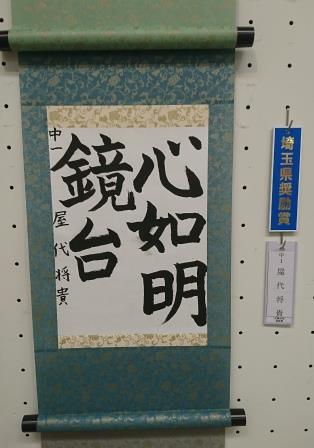 心如明
鏡台
中一 屋代将貴
埼玉県奨励賞
中1 屋代将貴